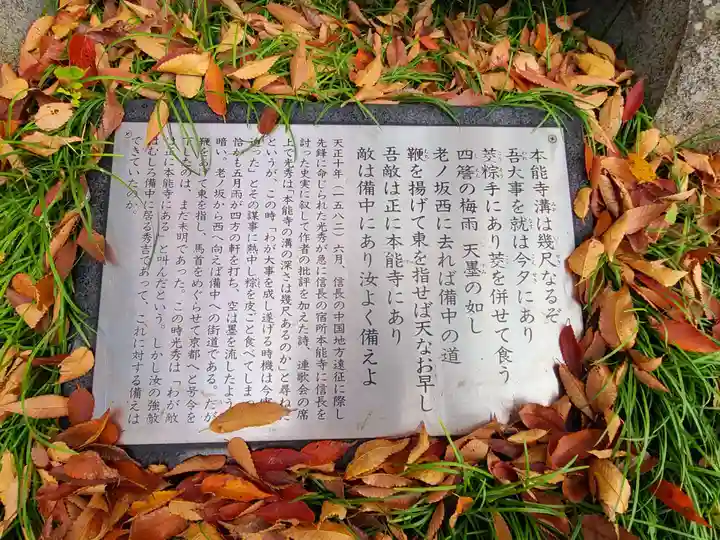 本能寺溝は幾尺なるぞ
吾大事を就は今夕にあり
茭粽手にあり茭を併せて食う
四簷の梅雨 天墨の如し
老ノ坂西に去れば備中の道
鞭を揚げて東を指せば天なお早し
吾敵は正に本能寺にあり
敵は備中にあり汝よく備えよ
天正十年(一五八二)六月、信長の中国地方遠征に際し
先鋒に命じられた光秀が急に信長の宿所本能寺に信長を
討った史実に叙して作者の批評を加えた詩。連歌会の席
上で光秀は「本能寺の溝の深さは幾尺あるのか」と尋ねた
というが、この時「わが大事を成し遂げる時機は今宵
った」とその謀事に熱中し粽を皮ごと食べてしま
恰かも五月雨が四方の軒を打ち、空は墨を流したよう
暗い。老ノ坂から西へ向えば備中への街道である。だが
鞭をあげて東を指し、馬首をめぐらせて京都へと号令を
したのは、まだ未明であった。この時光秀は「わが敵
に本能寺にある」と叫んだという。しかし汝の強敵
むしろ備中に居る秀吉であって、これに対する備えは
できていたのか。